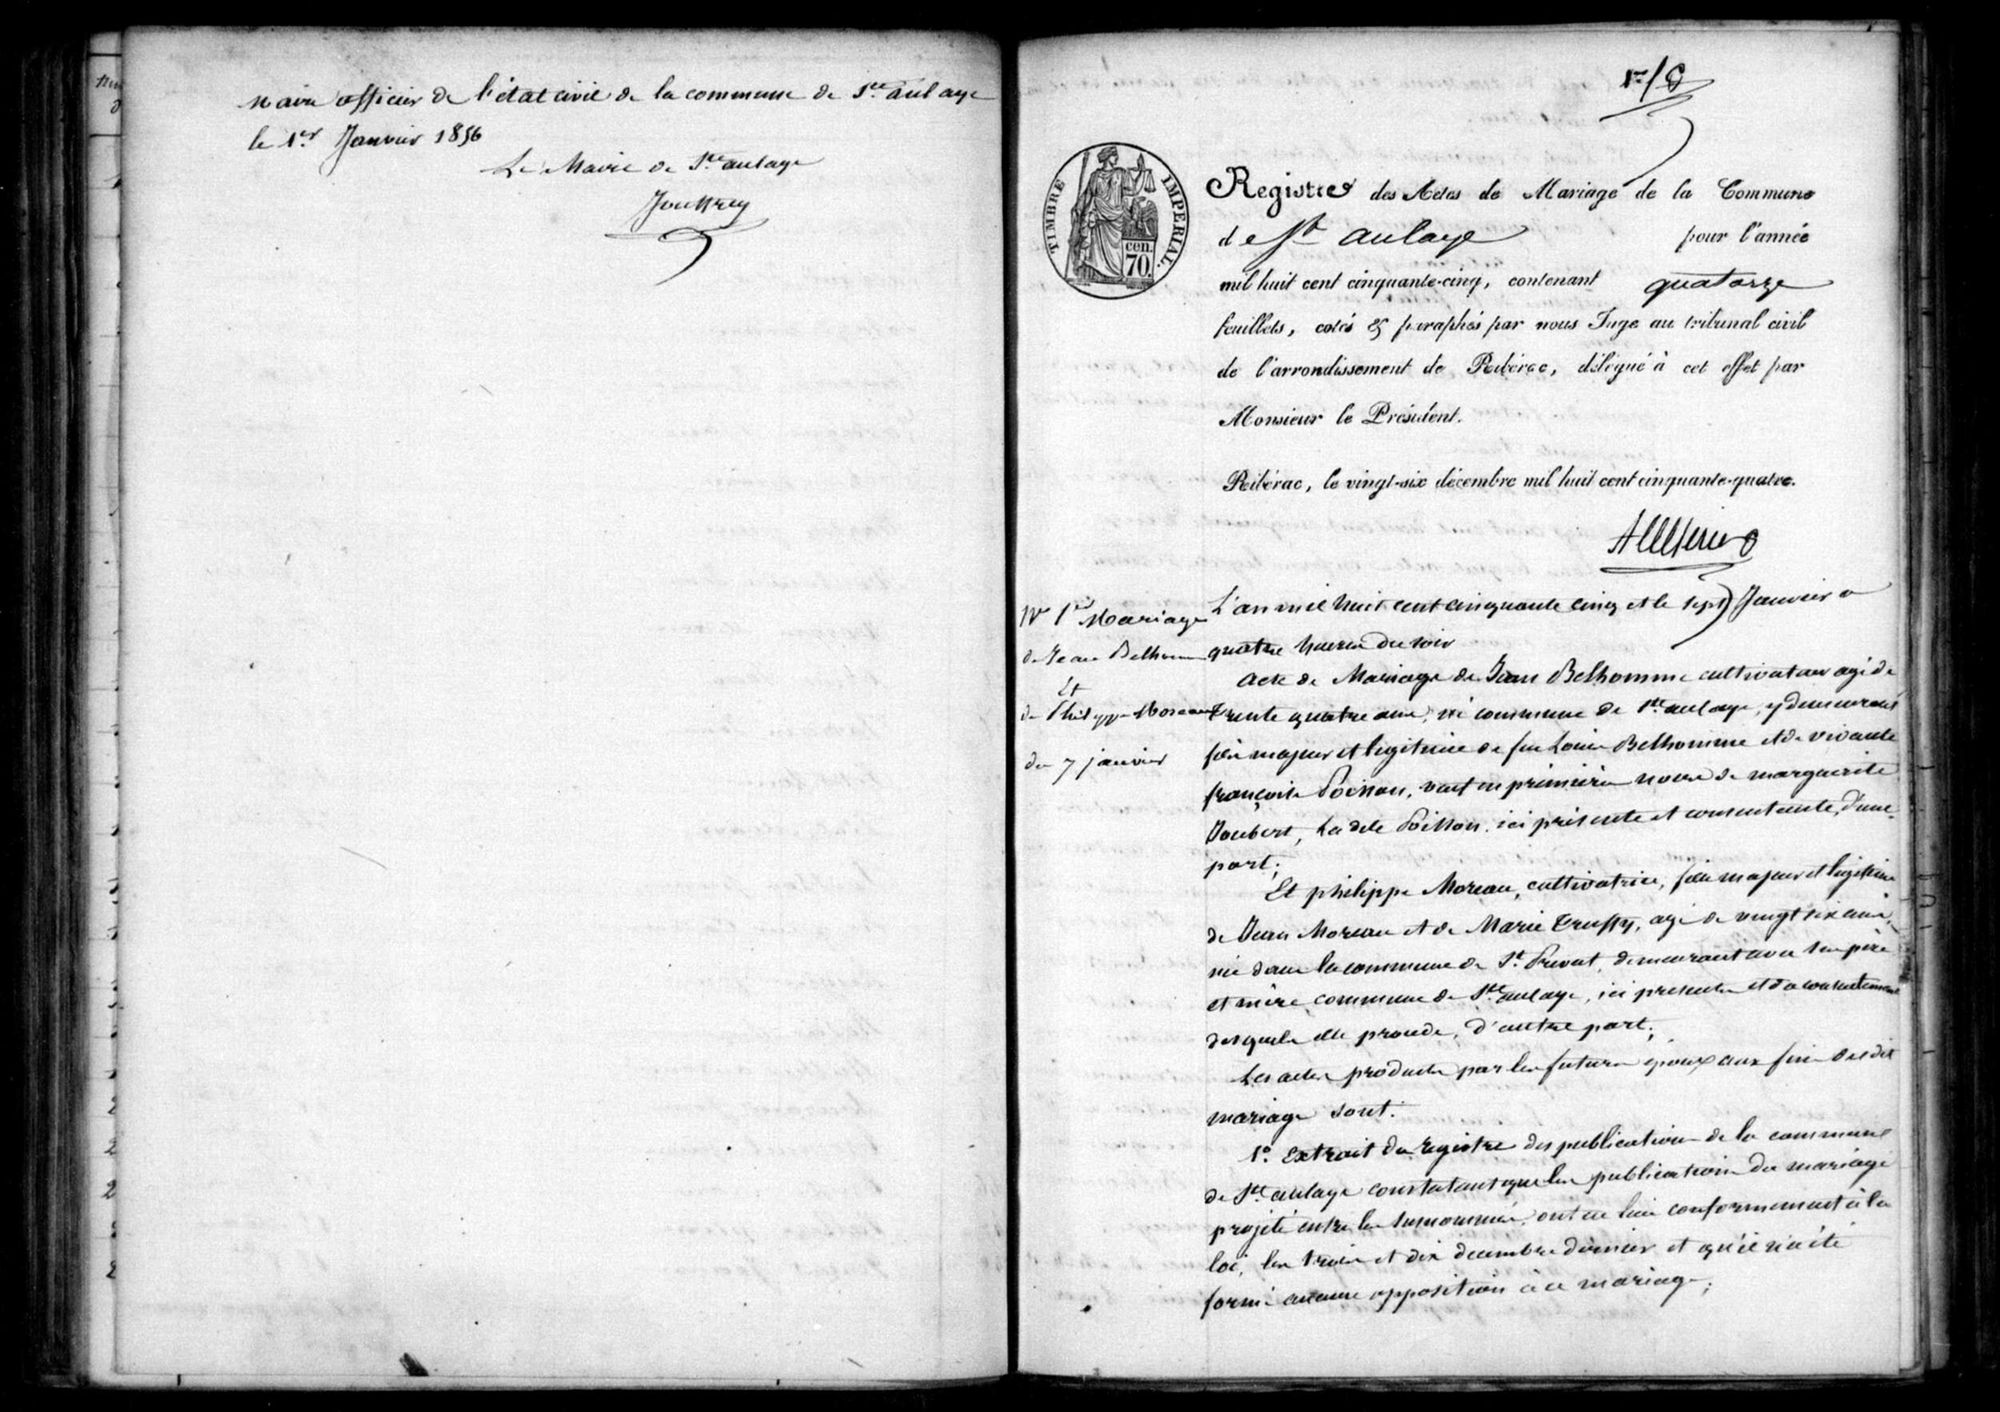 Maire officier de l'état civil de la commune de Ste aulaye
le 1er Janvier 1856
Le Maire de Ste aulaye
Jouffrey
1er/
TIMBRE IMPERIAL.
cen.
70.
Registre des Actes de Mariage de la Commune
de Ste aulaye pour l'année
mil huit cent cinquante-cinq, contenant quatorze
feuillets, cotés & paraphés par nous Juge au tribunal civil
de l'arrondissement de Ribérac, délégué à cet effet par
Monsieur le Président.
Ribérac, le vingt-six décembre mil huit cent cinquante-quatre.
No 1er Mariage
de Jean Belhomme
Et
de Philippe Moreau
du 7 janvier
L'an mil huit cent cinquante cinq et le sept Janvier a
quatre heures du soir
Acte de Mariage de Jean Belhomme cultivateur agé de
trente quatre ans, né commune de Ste aulaye, y demeurant
fils majeur et légitime de feu Louis Belhomme et de vivante
françoise Poisson, veuf en première noces de marguerite
Joubert, La dite Poisson ici présente et consentante, d'une
part;
Et philippe Moreau, cultivatrice, fille majeure et légitime
de Jean Moreau et de Marie Truffy, agé de vingt six ans,
née dans la commune de St. Privat, demeurant avec ses père
et mère commune de Ste aulaye, ici presents et du consentement
desquels elle procède, d'autre part;
Les actes produits par les futurs époux aux fins du dit
mariage sont:
1o. Extrait du registre des publications de la commune
de Ste aulaye constatant que les publications du mariage
projeté entre les susnommés, ont eu lieu conformement à la
loi, les trois et dix decembre dernier et qu'il n'a été
formé aucune opposition à ce mariage;